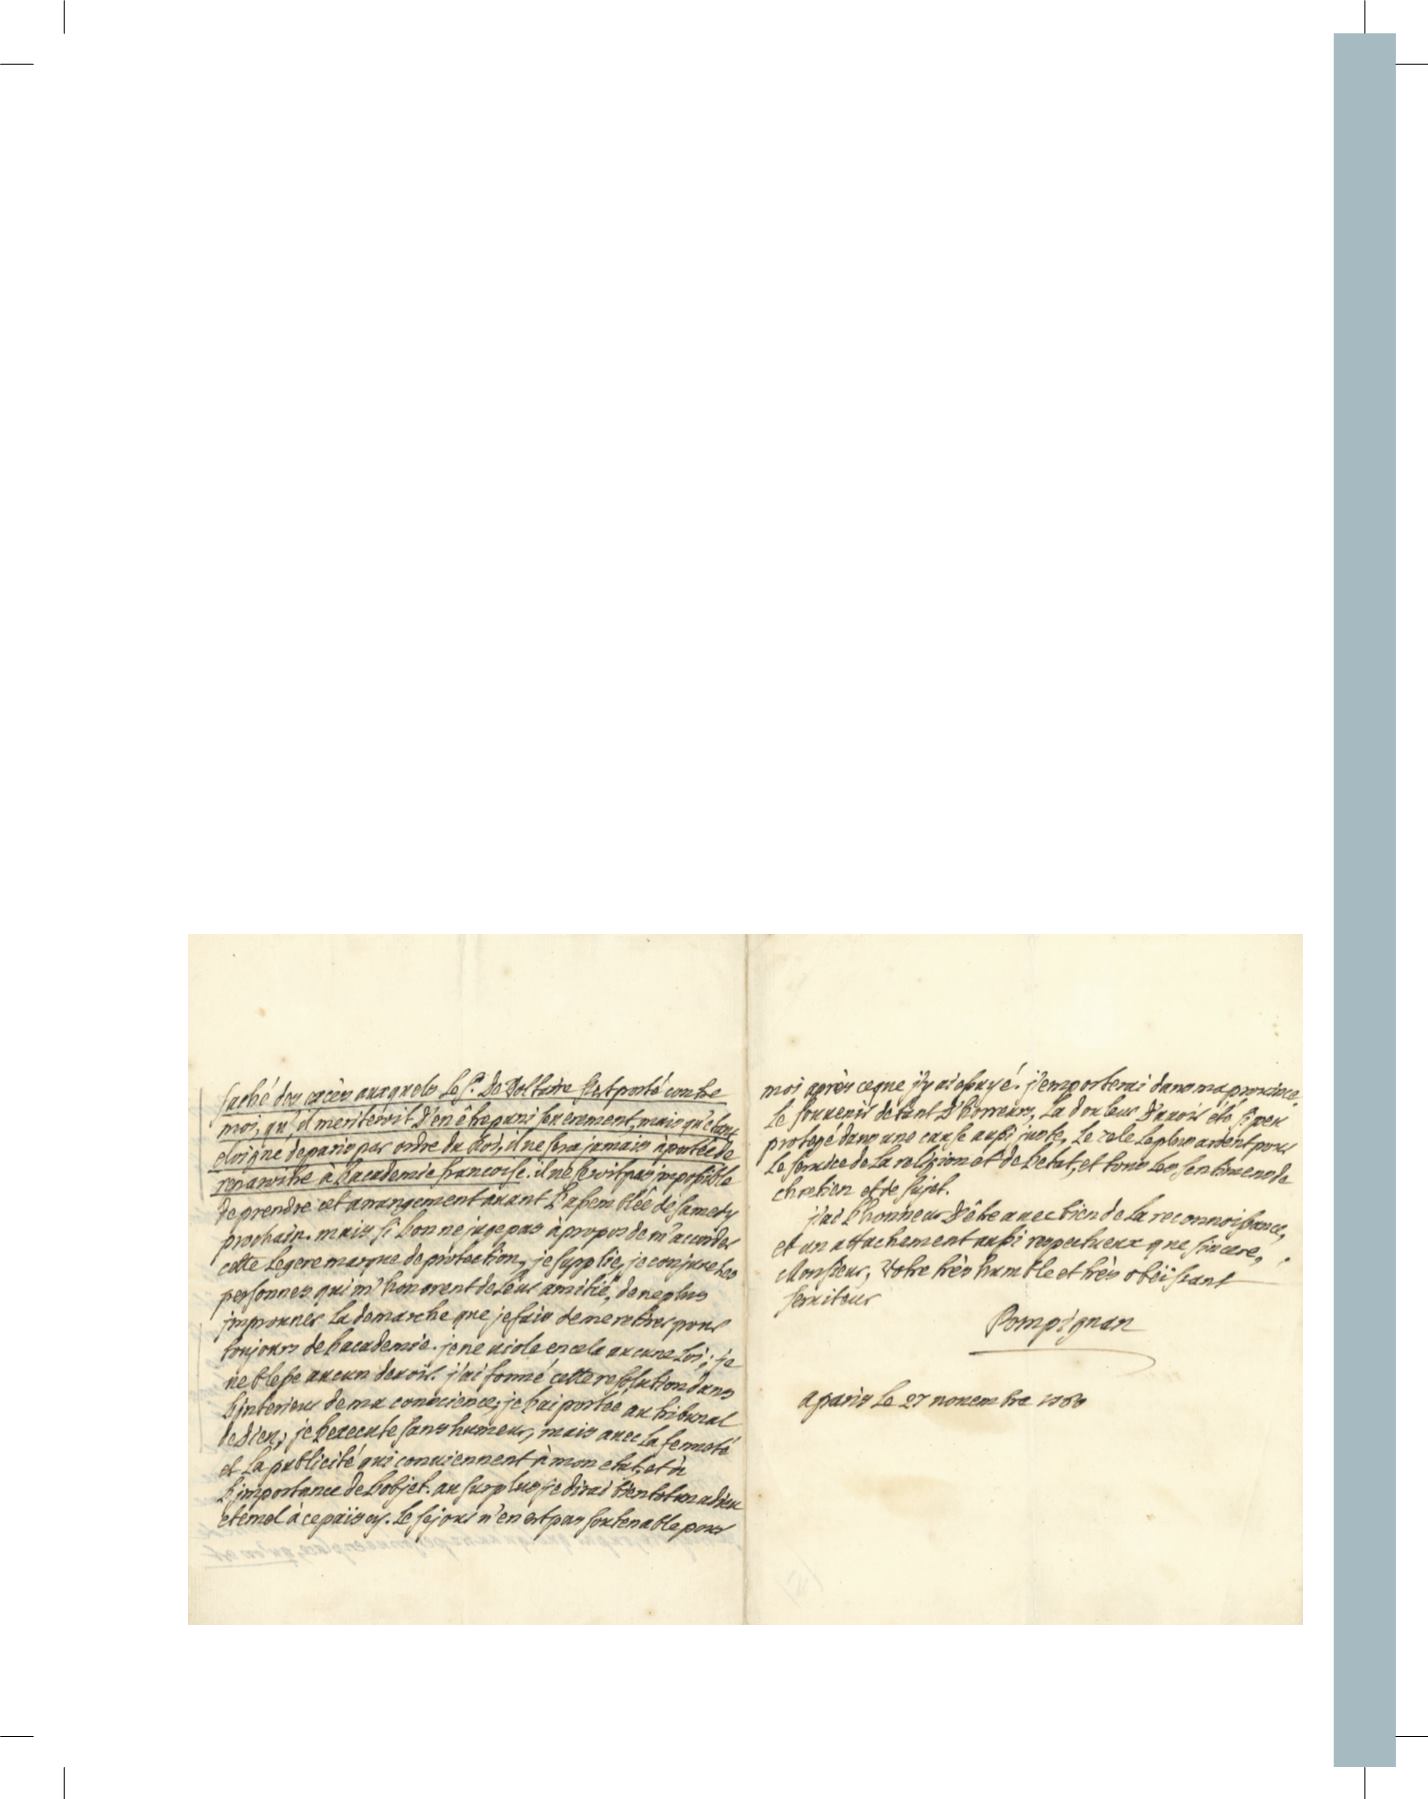 faché des excès auxquels le Sr. De Voltaire s'est porté contre
moi, qu'il meriteroit d'en être puni severement, mais qu'étant
eloigné de paris par ordre du Roi, il ne sera jamais à portée de
reparoitre à l'academie francoise. il ne seroit pas impossible
de prendre cet arrangement avant l'assemblée de samedy
prochain. mais si l'on ne juge pas à propos de m'accorder
cette legere marque de protection, je supplie, je conjure les
personnes qui m'honorent de leur amitié, de ne plus
improuver la demarche que je fais de me retirer pour
toujours de l'academie. je ne viole en cela aucune Loi; je
ne blesse aucun devoir. j'ai formé cette resolution dans
l'interieur de ma conscience; je l'ai portée au tribunal
de Dieu; je l'execute sans humeur, mais avec la fermeté
et la publicité qui conviennent à mon etat, et à
l'importance de l'objet. au surplus je dirai bientot un adieu
eternel à ce païs cy. Le sejour n'en est pas soutenable pour
moi après ce que j'y ai essuyé. j'emporterai dans ma province
le souvenir de tant d'horreurs, la douleur d'avoir été si peu
protegé dans une cause aussi juste, le zele le plus ardent pour
le service de la religion et de l'etat, et tous les sentimens de
chretien et de sujet.
j'ai l'honneur d'être avec bien de la reconnoissance,
et un attachement aussi respectueux que sincere,
Monsieur, Votre très humble et très obéissant
serviteur
Pompignan
a paris le 27 novembre 1760